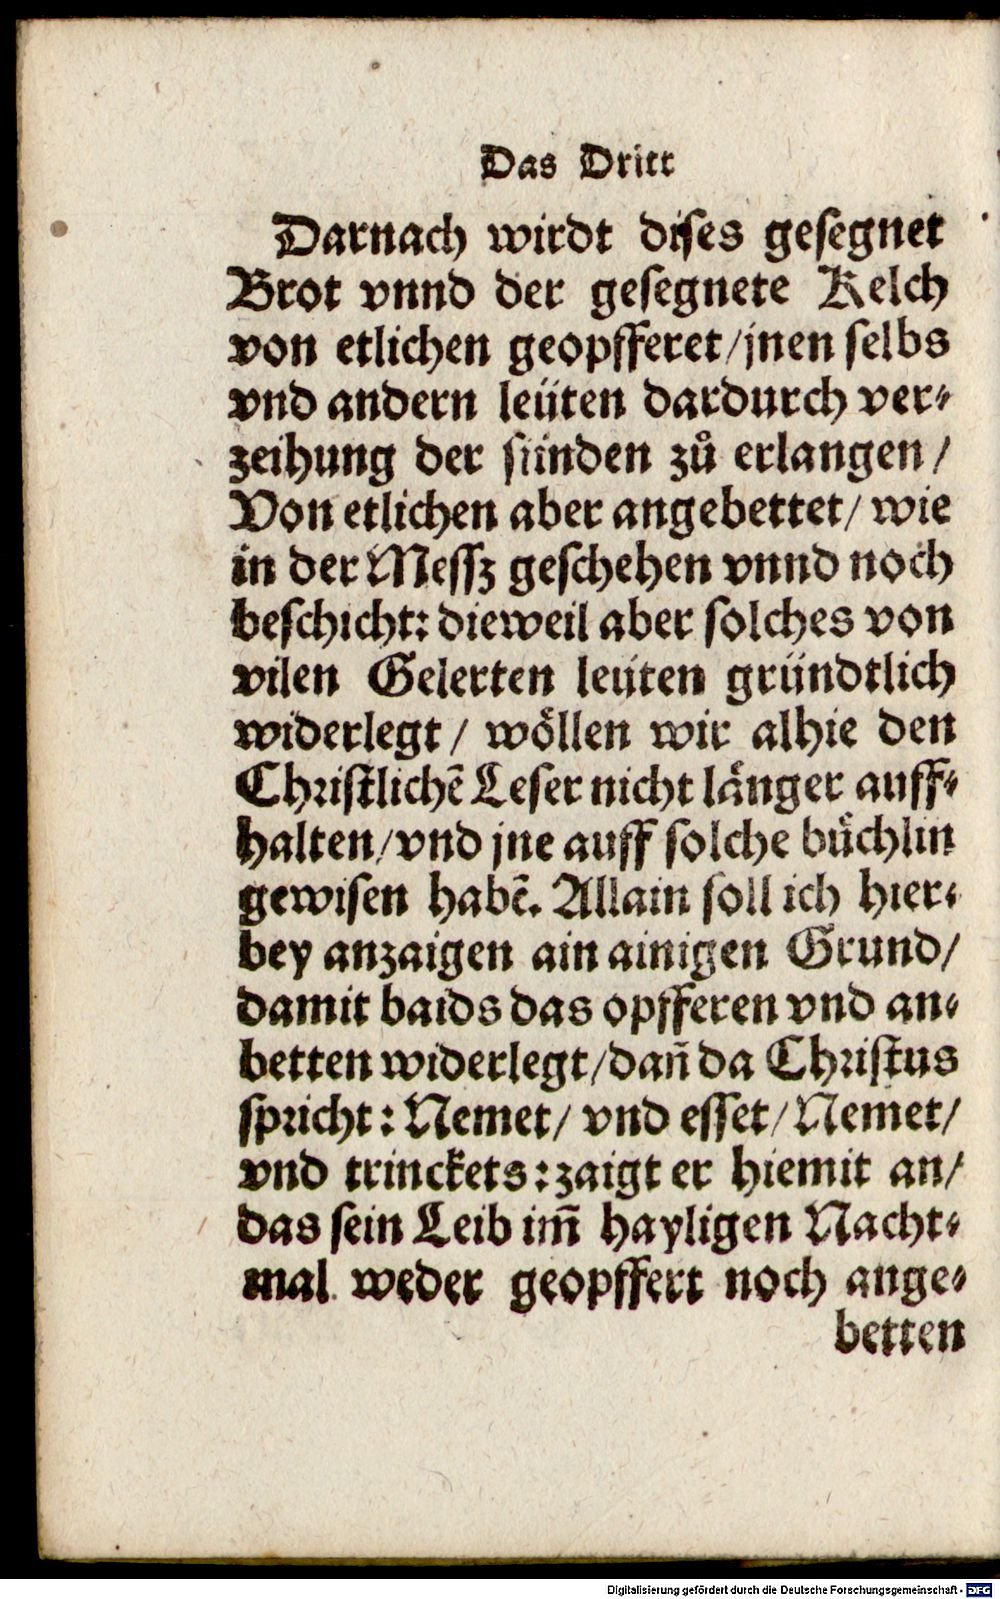 Das Dritt
Darnach wirdt dises gesegnet
Brot vnnd der gesegnete Kelch
von etlichen geopfferet/jnen selbs
vnd andern leüten dardurch ver⸗
zeihung der sünden zů erlangen/
Von etlichen aber angebettet/ wie
in der Messz geschehen vnnd noch
beschicht: dieweil aber solches von
vilen Gelerten leüten gründtlich
widerlegt/ wöllen wir alhie den
Christlichẽ Leser nicht länger auff⸗
halten/vnd jne auff solche büchlin
gewisen habẽ. Allain soll ich hier⸗
bey anzaigen ain ainigen Grund/
damit baids das opfferen vnd an⸗
betten widerlegt/dañ da Christus
spricht: Nemet/ vnd esset/ Nemet/
vnd trinckets: zaigt er hiemit an/
das sein Leib im̃ hayligen Nacht⸗
mal weder geopffert noch ange⸗
betten
Digitalisierung gefördert durch die Deutsche Forschungsgemeinschaft - DFG